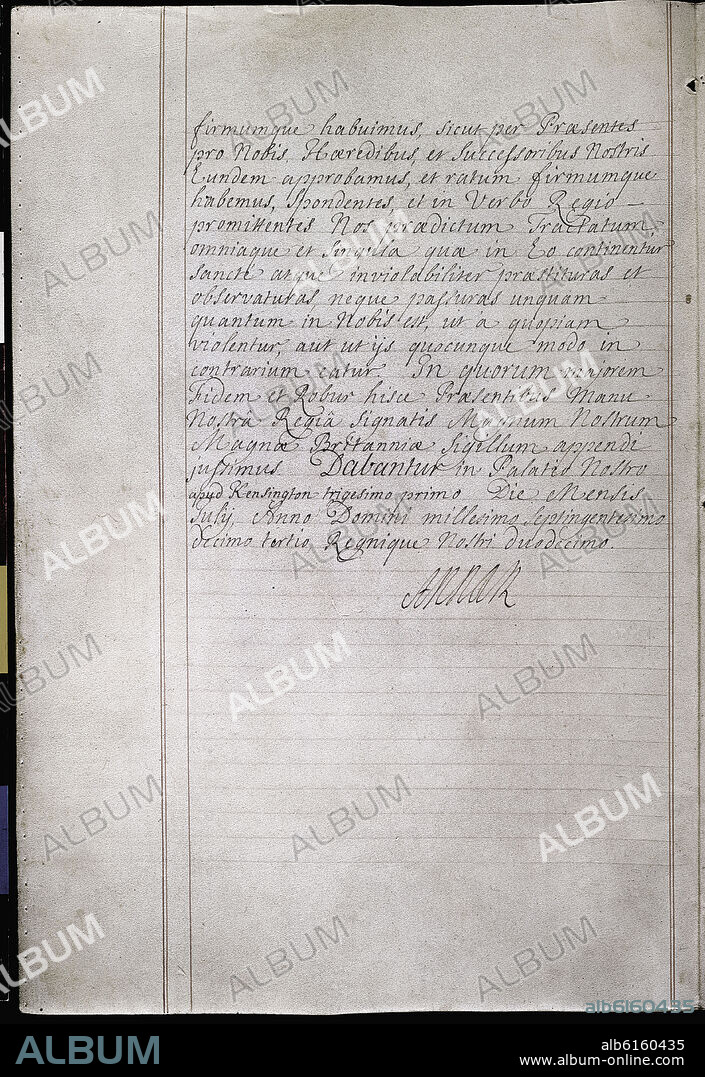 firmumque habuimus, sicut per Præsentes
pro Nobis, Hæredibus, et Successoribus Nostris
Eundem approbamus, et ratum firmumque
habemus, Spondentes, et in Verbo Regio —
promittentes Nos prædictum Tractatum,
omniaque et singula quæ in Eo continentur
sancte atque inviolabiliter præstituras et
observaturas, neque passuras unquam
quantum in Nobis est, ut a quopiam
violentur, aut ut ijs quocunque modo in
contrarium eatur. In quorum majorem
Fidem et Robur hisce Præsentibus Manu
Nostrâ Regiâ signatis Magnum Nostrum
Magnæ Britanniæ Sigillum appendi
jussimus Dabantur in Palatio Nostro
apud Kensington trigesimo primo Die Mensis
Julij, Anno Domini millesimo Septingentesimo
decimo tertio Regnique Nostri duodecimo.
Anna R
ALBUM
alb6160435
alb6160435
www.album-online.com